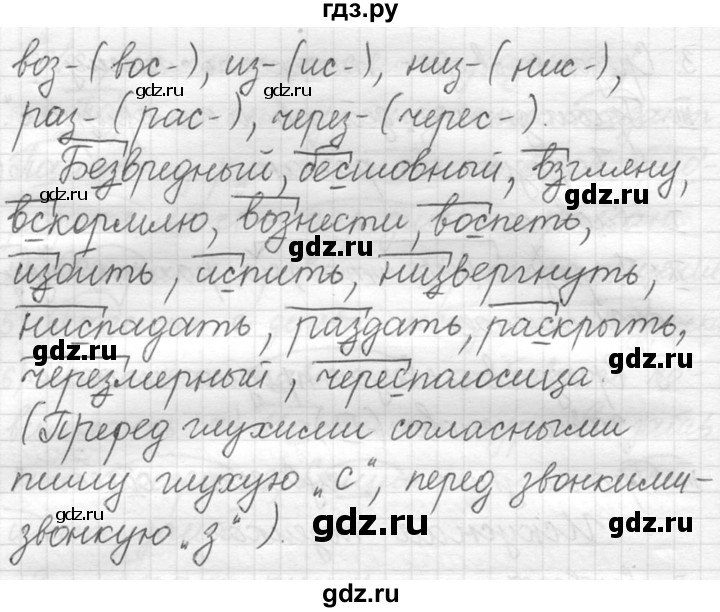 гдз.ру
воз-(вос-), из-(ис-), низ-(нис-),
gdz.ru gdz.ru
раз-(рас-), через-(черес-).
gdz.ru
Безвредный, бесшовный, взгляну,
gdz.ru gdz.ru
вскормлю, вознести, воспеть,
gdz.ru
избить, испить, низвергнуть,
gdz.ru gdz.ru
ниспадать, раздать, раскрыть,
gdz.ru gdz.ru
черезмерный, чересполосица.
(Перед глухими согласными
пишу глухую „с“, перед звонкими-
gdz.ru gdz.ru
звонкую „з“).
gdz.ru
gdz.ru